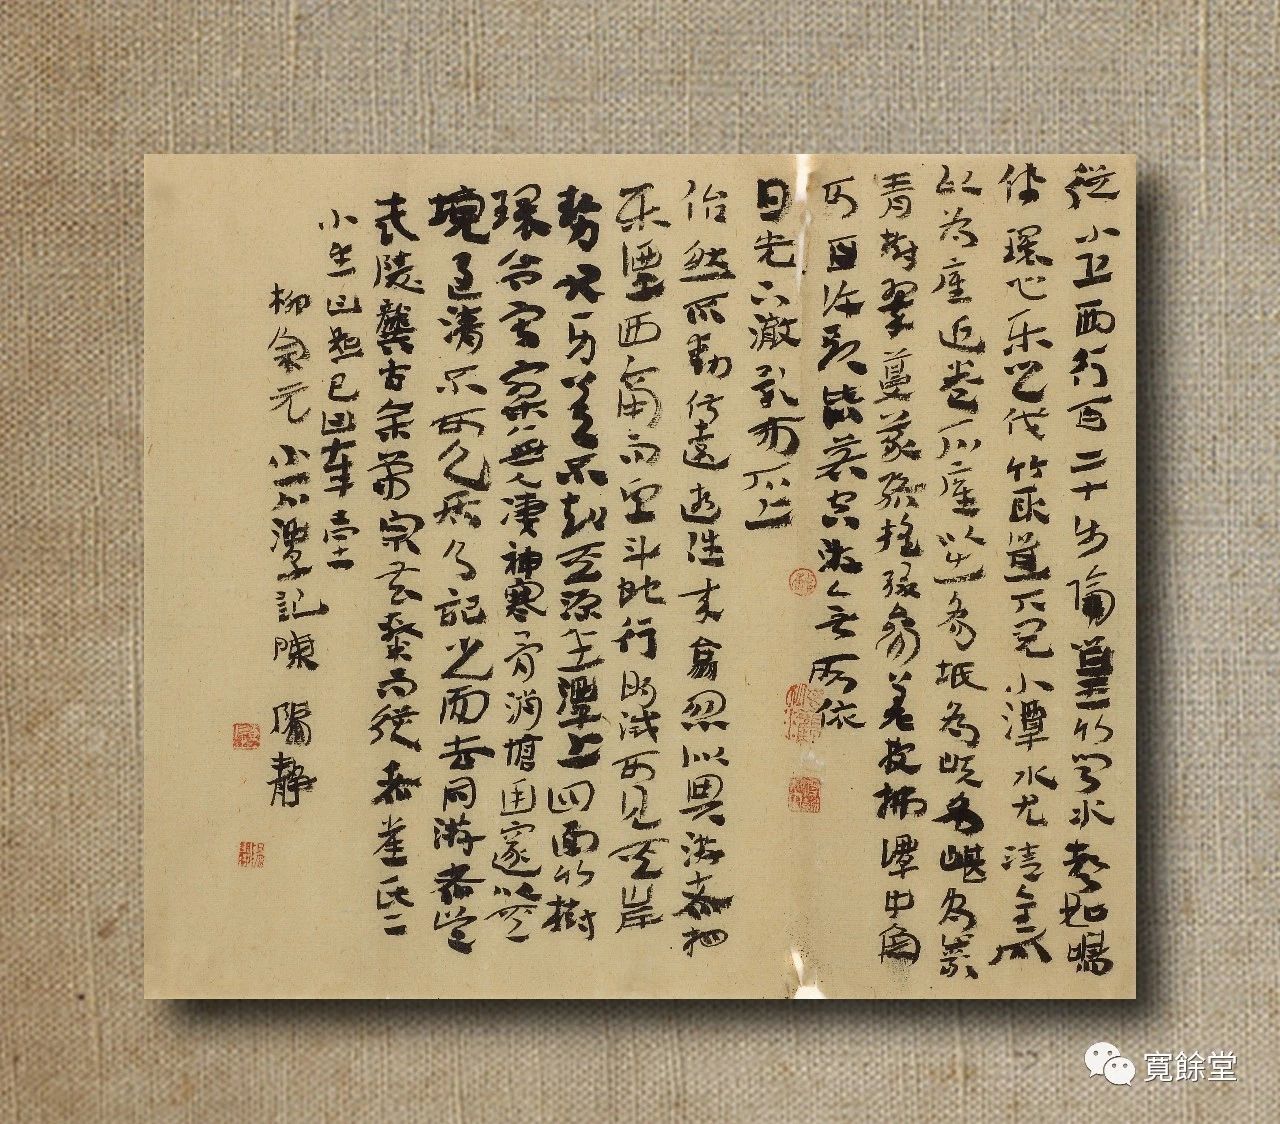 從小丘西行百二十步隔篁竹聞水聲如鳴
佩環心樂之伐竹取道下見小潭水尤清全石
以為底近卷石底以出為坻為嶼為嵁為岩
青樹翠蔓蒙絡搖綴參差披拂潭中魚
可百許頭皆若空游無所依
日光下澈影布石上
佁然不動俶遠逝往來翕忽似與游者相
樂潭西南而望斗蛇行明滅可見其岸
勢犬牙差不知其源坐潭上四面竹樹
環合寂寥無人淒神寒骨悄愴幽邃以其
境過清不可久居乃記之而去同游者吳
武陵龔古余弟宗玄隸而從者崔氏二
小生曰恕己曰奉壹
柳宗元小石潭記陳 靜
寬餘堂